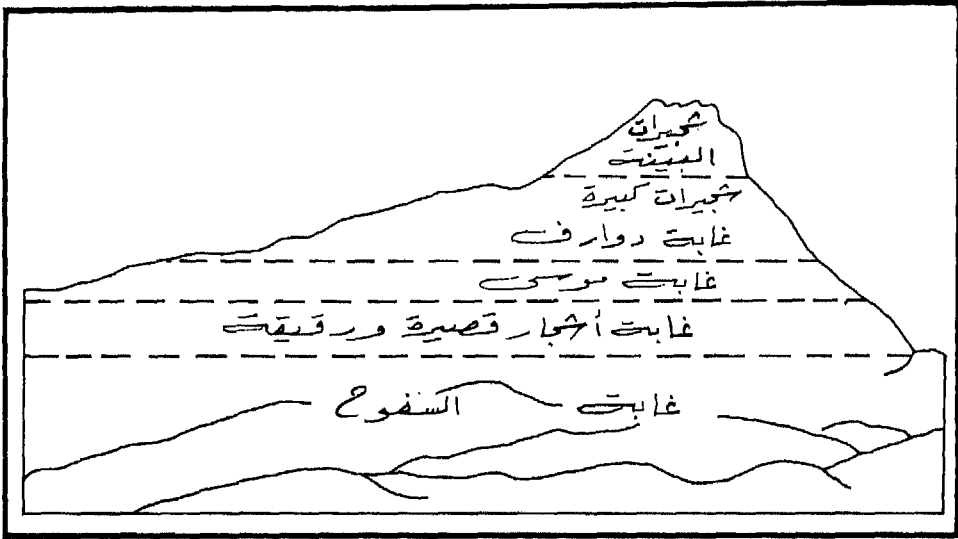 شجيرات
البيئة
شجيرات كبيرة
غابة دوارف
غابة موسى
غابة أشجار قصيرة ورقيقة
غابة السفوح